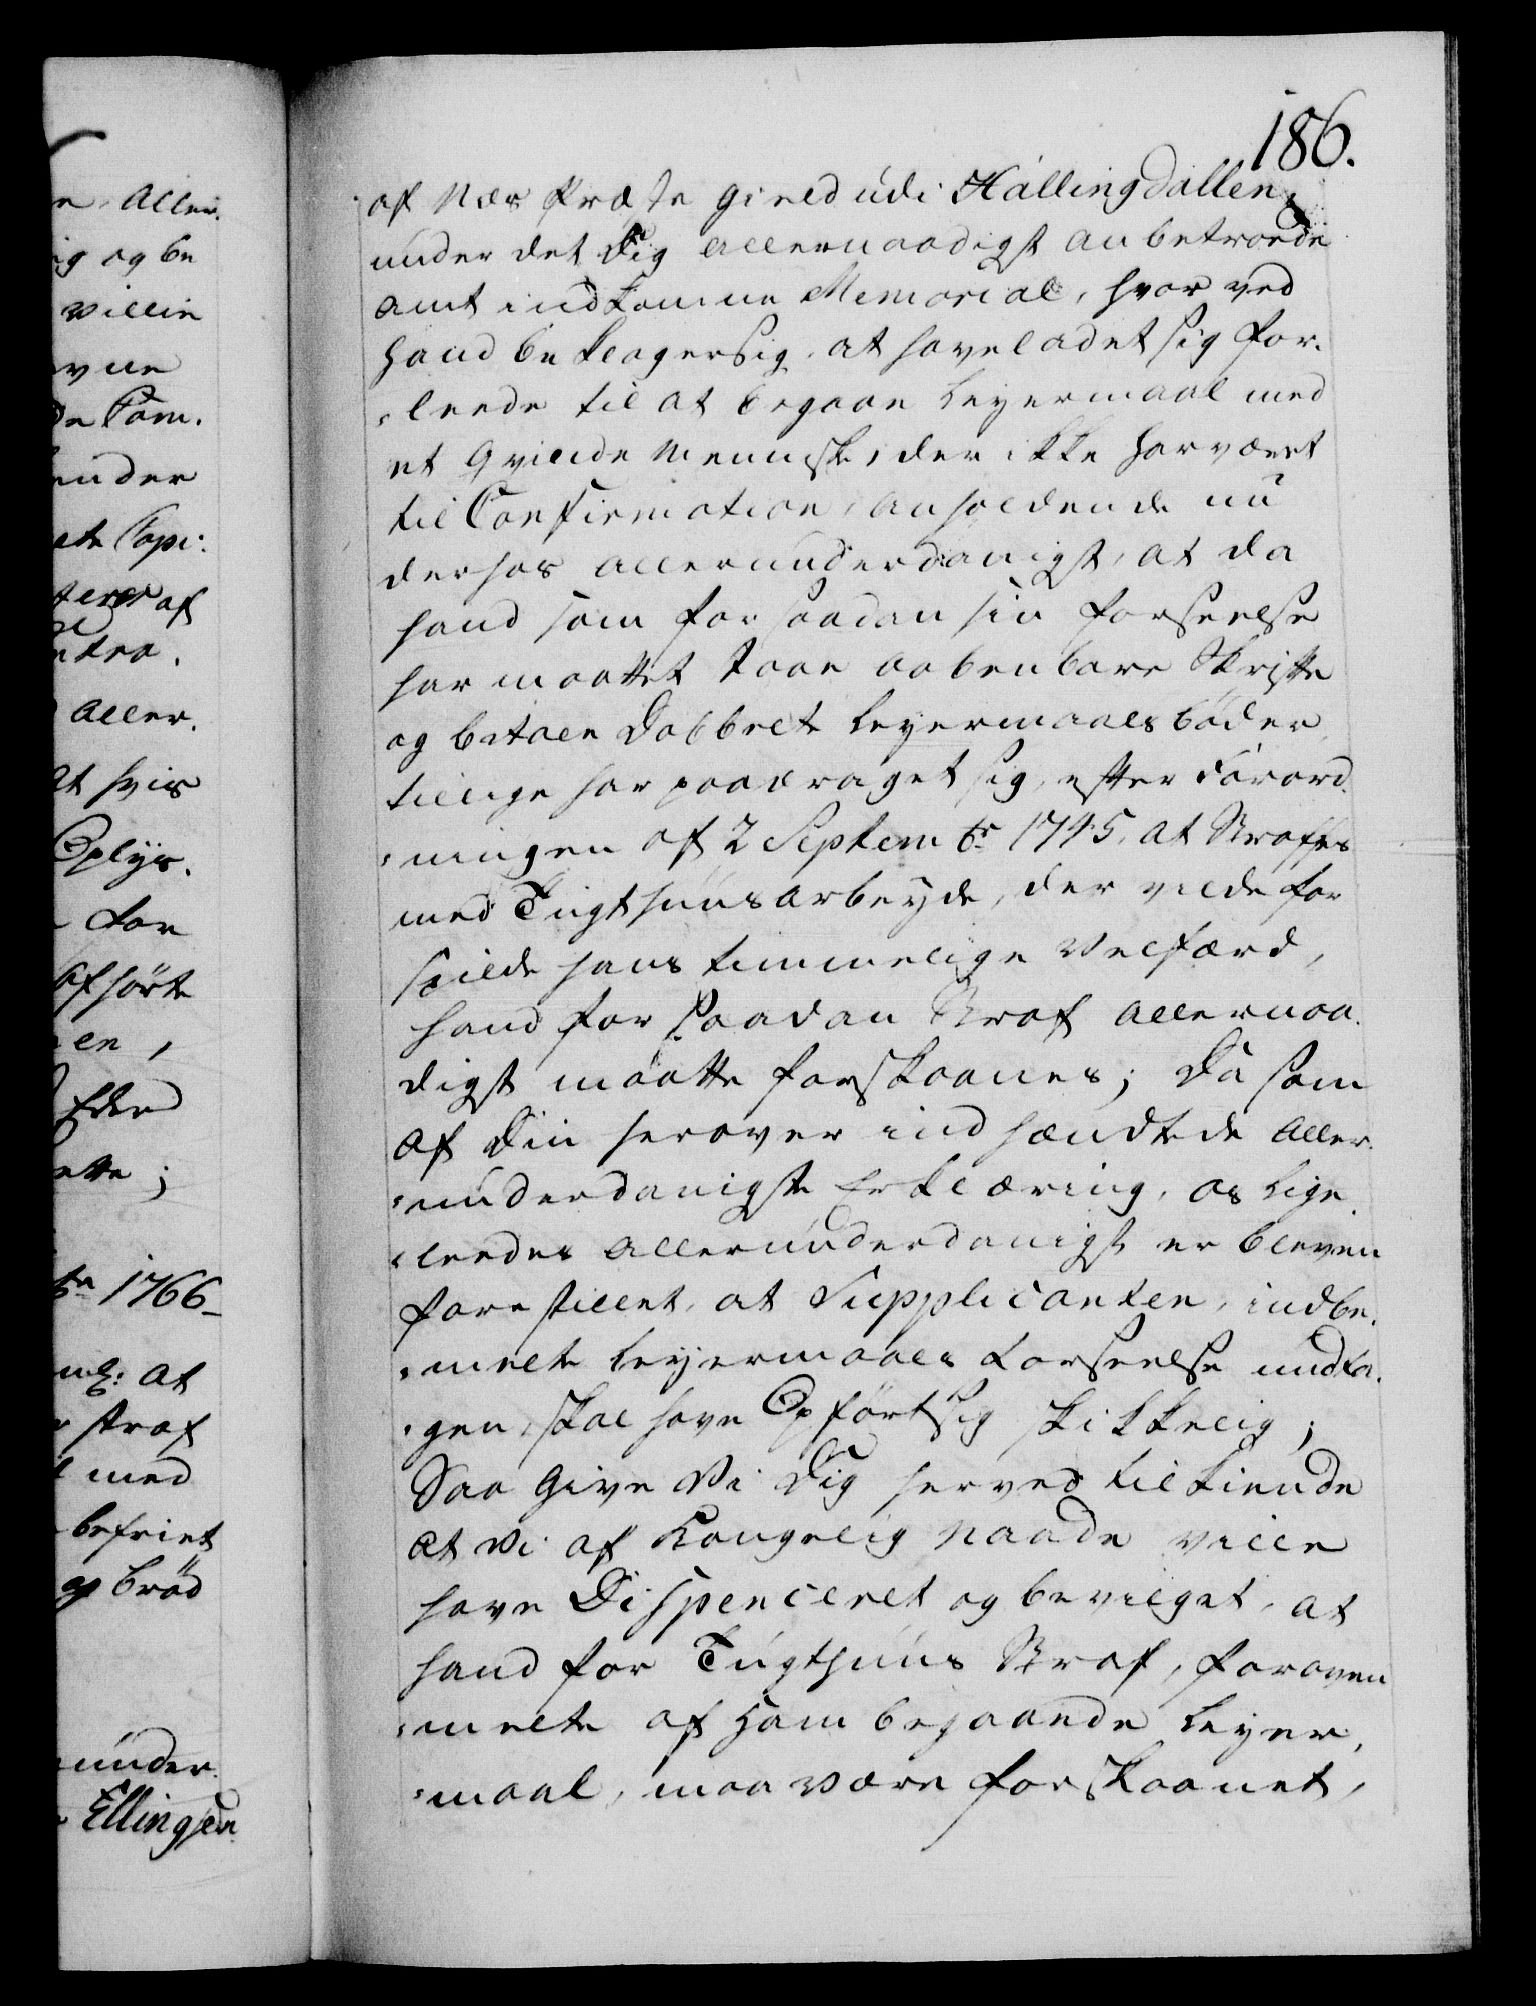 186.
af Næs Præste Gield udi Hallingdallen
under det dig allernaadigst anbetroede
Amt indkomne Memorial, hvor ved
hand beklager sig, at have ladet sig for-
leede til at begaae Leyermaal med
et Qvinde Menniske, der ikke har været
til Confirmation, anholdende nu
derhos allerunderdanigst, at da
hand som for saadan sin Forseelse
har maattet staae aabenbare Skrifte
og betale Dobbelt Leyermaals bøder,
tillige har paadraget sig, efter Forord-
ningen af 2 Septembr 1745, at straffes
med Tugthuusarbeyde, der vilde for
spilde hans timmelige Velfærd,
hand for saadan Straf allernaa-
digst maatte forskaanes; Da som
af Din herover indsændte aller-
underdanigste Erklæring, os lige-
leedes allerunderdanigst er bleven
forestillet, at Supplicanten, indbe-
melte Leyermaals Forseelse undta-
gen, skal have Opført sig skikkelig;
Saa give Vi Dig herved tilkiende
at Vi af Kongelig Naade ville
have Dispenceret og bevilget, at
hand for Tugthuus Straf, foroven
melte af ham begaaede Leyer-
maal, maa være forskaanet,
Aller.
ig og be
villie
De Com.
under
ete Copi:
af
Aller.
At hvis
Oplys.
for
afhørte
en,
ette;
1766
At
straf
med
befriet
og brød
under.
Ellingsen